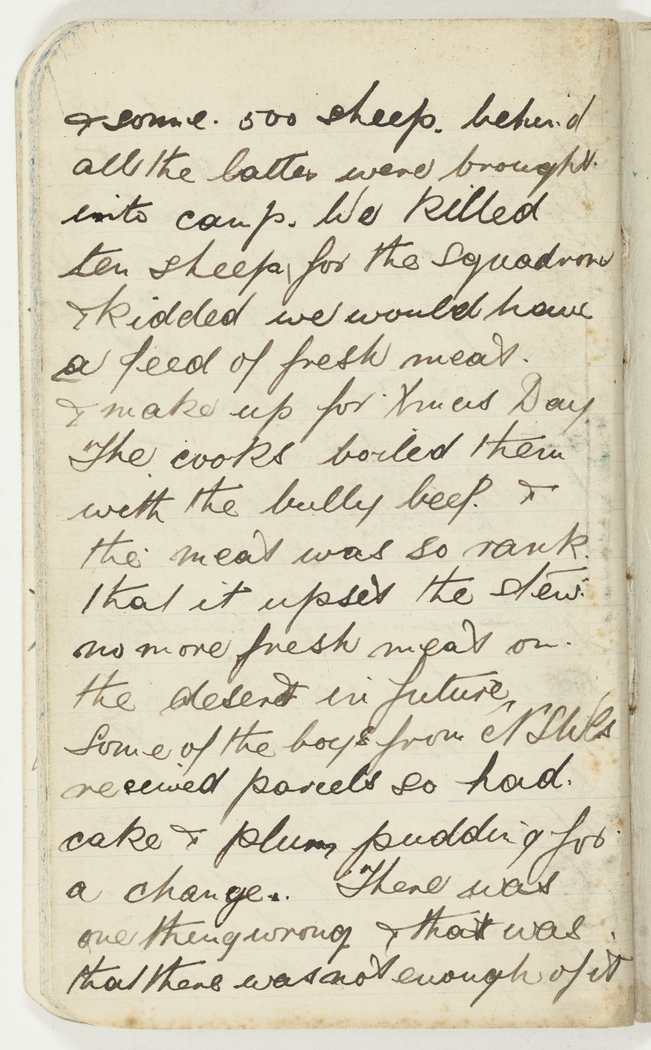 & some. 500 sheep. behind
all the latter were brought.
into camp. We killed
ten sheep, for the Squadron
& kidded we would have
a feed of fresh meat.
& make up for Xmas Day
The cooks boiled them
with the bully beef. &
the meat was so rank.
that it upset the stew.
no more fresh meat on.
the desert in future,
Some of the boys from NSW's
received parcels so had.
cake & plum pudding for
a change.. There was
one thing wrong & that was.
that there was not enough of it